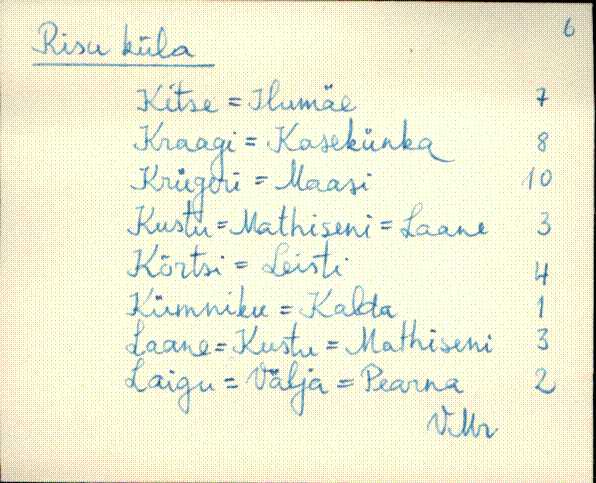 6
Risu küla
Kitse = Ilumäe 7
Kraagi = Kasekünka 8
Krügeri = Maasi 10
Kustu = Mathiseni = Laane 3
Kõrtsi = Leisti 4
Kümniku = Kalda 1
Laane = Kustu = Mathiseni 3
Laigu = Välja = Pearna 2
V.Mr